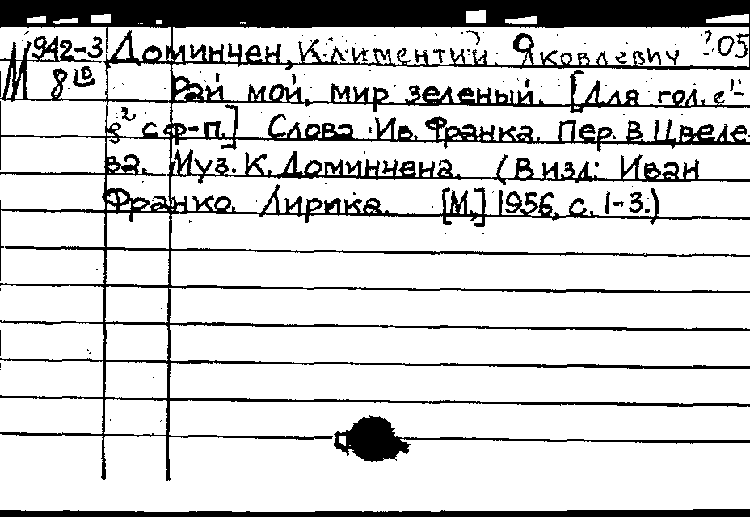 942-3 Доминчен, Климентий Яковлевич 305
М 8 Рай мой, мир зеленый. [Для гол. e¹-
g² с ф-п.] Слова Ив. Франка. Пер. В. Цвеле-
ва. Муз. К. Доминчена. (В изд: Иван
Франко. Лирика. [М.,] 1956, с. 1-3.)